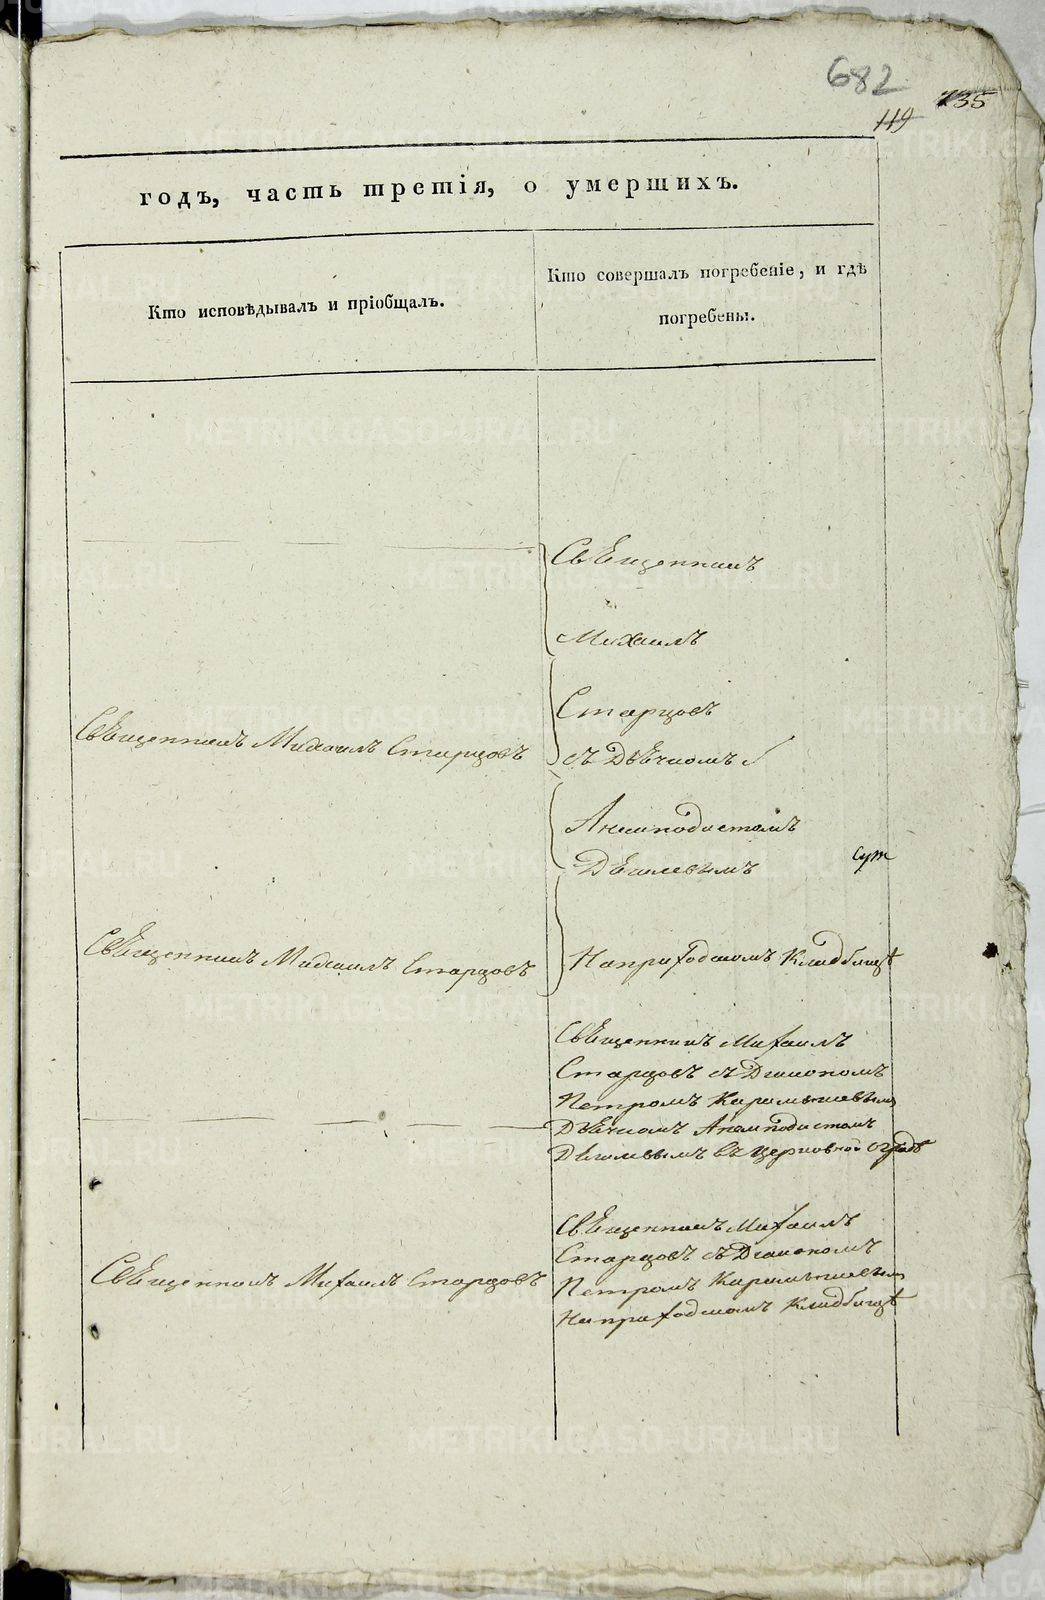 682
135
119
годъ, часть третія, о умершихъ.
Кто исповѣдывалъ и пріобщалъ.
Кто совершалъ погребеніе, и гдѣ
погребены.
Священникъ
Михаилъ
Старцовъ
Священникъ Михаилъ Старцовъ
съ Дьячкомъ
Анемподистомъ
Священникъ Михаилъ Старцовъ
На приходскомъ Кладбищѣ
Священникъ Михаилъ
Старцовъ съ Діакономъ
Петромъ
Дьячкомъ Анемподистомъ
въ церковной оградѣ
Священникъ Михаилъ
Старцовъ съ Діакономъ
Священникъ Михаилъ Старцовъ
Петромъ
На приходскомъ Кладбищѣ
METRIKI.GASO-URAL.RU